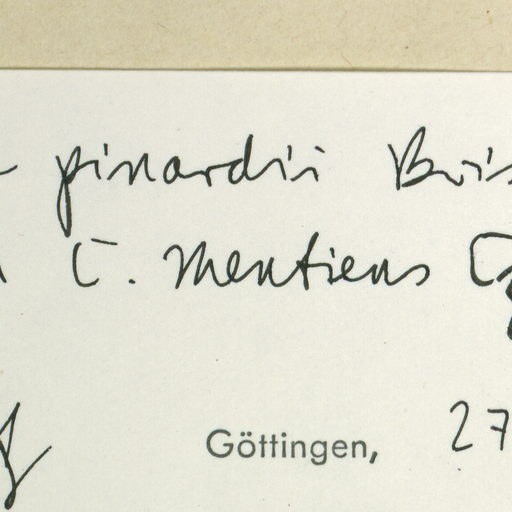 pinardii Bois
C. mentiens
Göttingen, 27